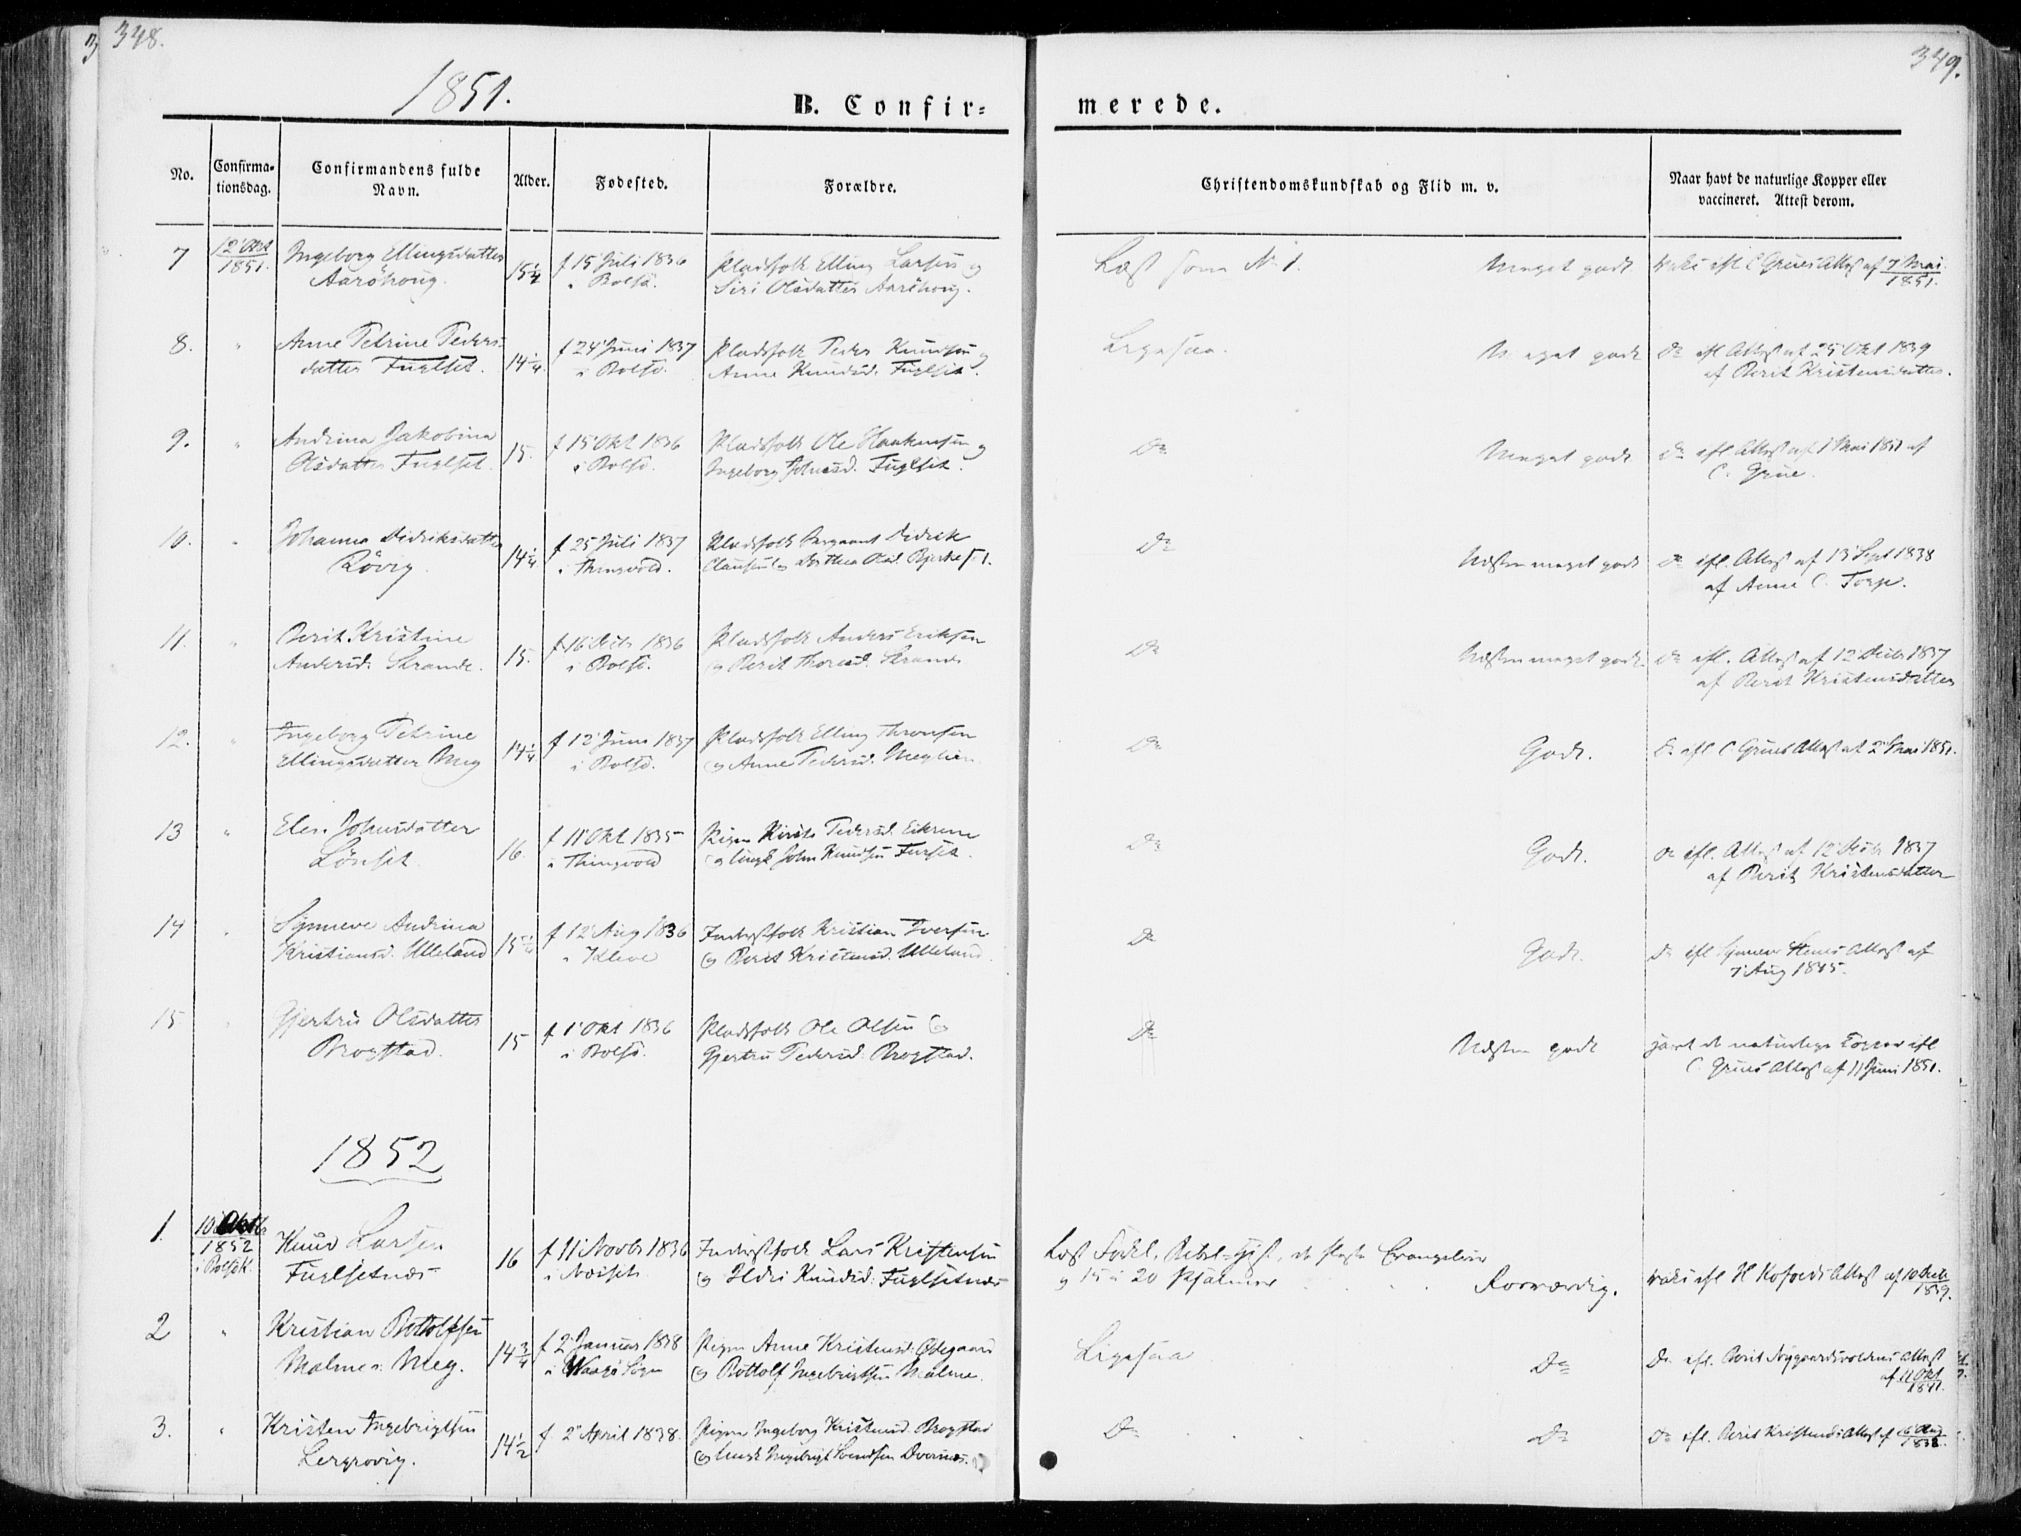 348.
349.
1851.
B. Confir-
merede.
No.
Confirma-
tionsdag.
Confirmandens fulde
Navn.
Alder.
Fødested.
Forældre.
Christendomskundskab og Flid m. v.
Naar havt de naturlige Kopper eller
vaccineret. Attest derom.
7
12 Okt
1851.
Ingeborg Ellingsdatter
Aaröhoug.
15 1/4
f 15 Juli 1836
i Bolsö.
Pladsfolk Elling Larsen og
Siri Olsdatter Aaröhoug.
Læst som N. 1.
Meget godt
Vaks efl C Grües Attest af 7 Mai
1851.
8.
"
Anne Petrine Peders-
datter Fuglset.
14 1/4
f 24 Juni 1837
i Bolsö.
Pladsfolk Peder Knudsen og
Anne Knudsd. Fuglset.
Ligesaa.
Meget godt
Do efl Attest af 25 Okt 1839
af Berit Kristensdatter.
9.
"
Andrina Jakobina
Olsdatter Fuglset.
15.
f 15 Okt 1836
i Bolsö.
Pladsfolk Ole Haakensen og
Ingeborg Johnsd. Fuglset.
Do
Meget godt
Do efl Attest af 1 Mai 1851 af
C. Grüe.
10.
"
Johanna Didriksdatter
Rövig.
14 1/4
f 25 Juli 1837
i Thingvold.
Pladsfolk Sergeant Didrik
Clausen og Dorthea Olsd.
Do
Næsten meget godt
Do efl. Attest af 13 Sept 1838
af Anne C. Torp.
11.
"
Berit Kristine
Andersd. Strande.
15.
f 16 Octb 1836
i Bolsö.
Pladsfolk Anders Eriksen
og Berit Thoresd. Strande
Do
Næsten meget godt
Do efl. Attest af 12 Decb 1837
af Berit Kristensdatter
12.
"
Ingeborg Petrine
Ellingsdatter Meg
14 1/4
f 12 Juni 1837
i Bolsö.
Pladsfolk Elling Thronsen
og Anne Pedersd. Meglien.
Do
Godt.
Do efl C Grües Attest af 2 Mai 1851.
13
"
Elen Johnsdatter
Lönset.
16.
f 11 Okt 1835
i Thingvold
Pigen Pedersd. Eikrem
og Ungk John Knudsen Furset.
Do
Godt.
Do efl. Attest af 12 Decb 1837
af Berit Kristensdatter
14
"
Synneve Andrina
Kristiansd. Ulleland
15 1/4
f 12 Aug 1836
i Kleve
Inderstfolk Kristian Iversen
og Berit Kristensd. Ulleland.
Do
Godt.
Do efl Synneve Attest af
7 Aug 1845.
15
"
Gjertru Olsdatter
Brogstad.
15
f 1 Okt 1836
i Bolsö.
Pladsfolk Ole Olsen og
Gjertru Pedersd. Brogstad.
Do
Næsten godt
havt de naturlige Kopper efl
C. Grües Attest af 11 Juni 1851.
1852
1.
10 Oktb
1852
i Bolsö K.
Knud Larsen
Fuglsetnæs
16
f 11 Novb 1836
i Næsset.
Inderstfolk Lars Kristensen
og Ildri Knudsd. Fuglsetnæs
Læst Forkl. Bibel-Hist. de fleste Evangelier
og 15 à 20 Psalmer
Rosværdig.
Vaks efl H Kofoeds Attest af 10 Octb
1839.
2
"
Kristian Bottolfsen
Malme i Meg.
14 3/4
f 2 Januar 1838
i Vaagö Sogn
Pigen Anne Kristensd. Ødegaard
og Bottolf Ingebrigtsen Malme.
Ligesaa
Do
Do efl. Berit Nygaardsvoldens Attest
af 11 Okt
1841.
3.
"
Kristen Ingebrigtsen
Lergrovig.
14 1/2
f 2 April 1838.
Pigen Ingeborg Kristensd. Brogstad
og Ungk Ingebrigt Svendsen Dverrnæs.
Do
Do
Do efl. Berit Kristensds Attest af 6 Aug
1838.